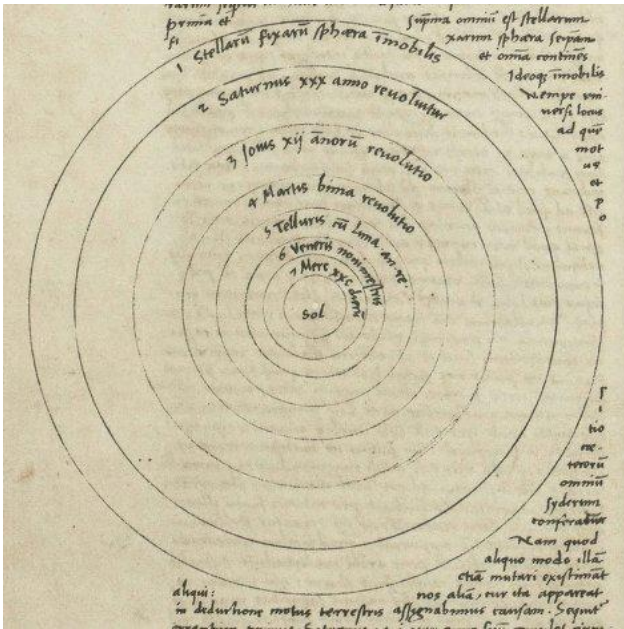 prima et suprema omniū est stellarum
fi xarum sphæra seipsam
et omnia continēs
Ideoq; īmobilis
Nempe vni-
versi locus
ad quē
mot
us
et
p
o
1 Stellarū fixarū sphæra īmobilis
2 Saturnus xxx anno revoluitur
3 Jouis xij anorū reuolutio
4 Martis bima reuolutio
5 Telluris cū Luna. an. re.
6 Veneris nonimestris
7 Merc xxc dierū
Sol
s
i
tio
cæ-
terorū
omniū
syderum
conferatur
Nam quod
aliquo modo illā
etiā mutari existimāt
aliqui: nos aliā, cur ita appareat
in deductione motus terrestris assignabimus causam. Sequit